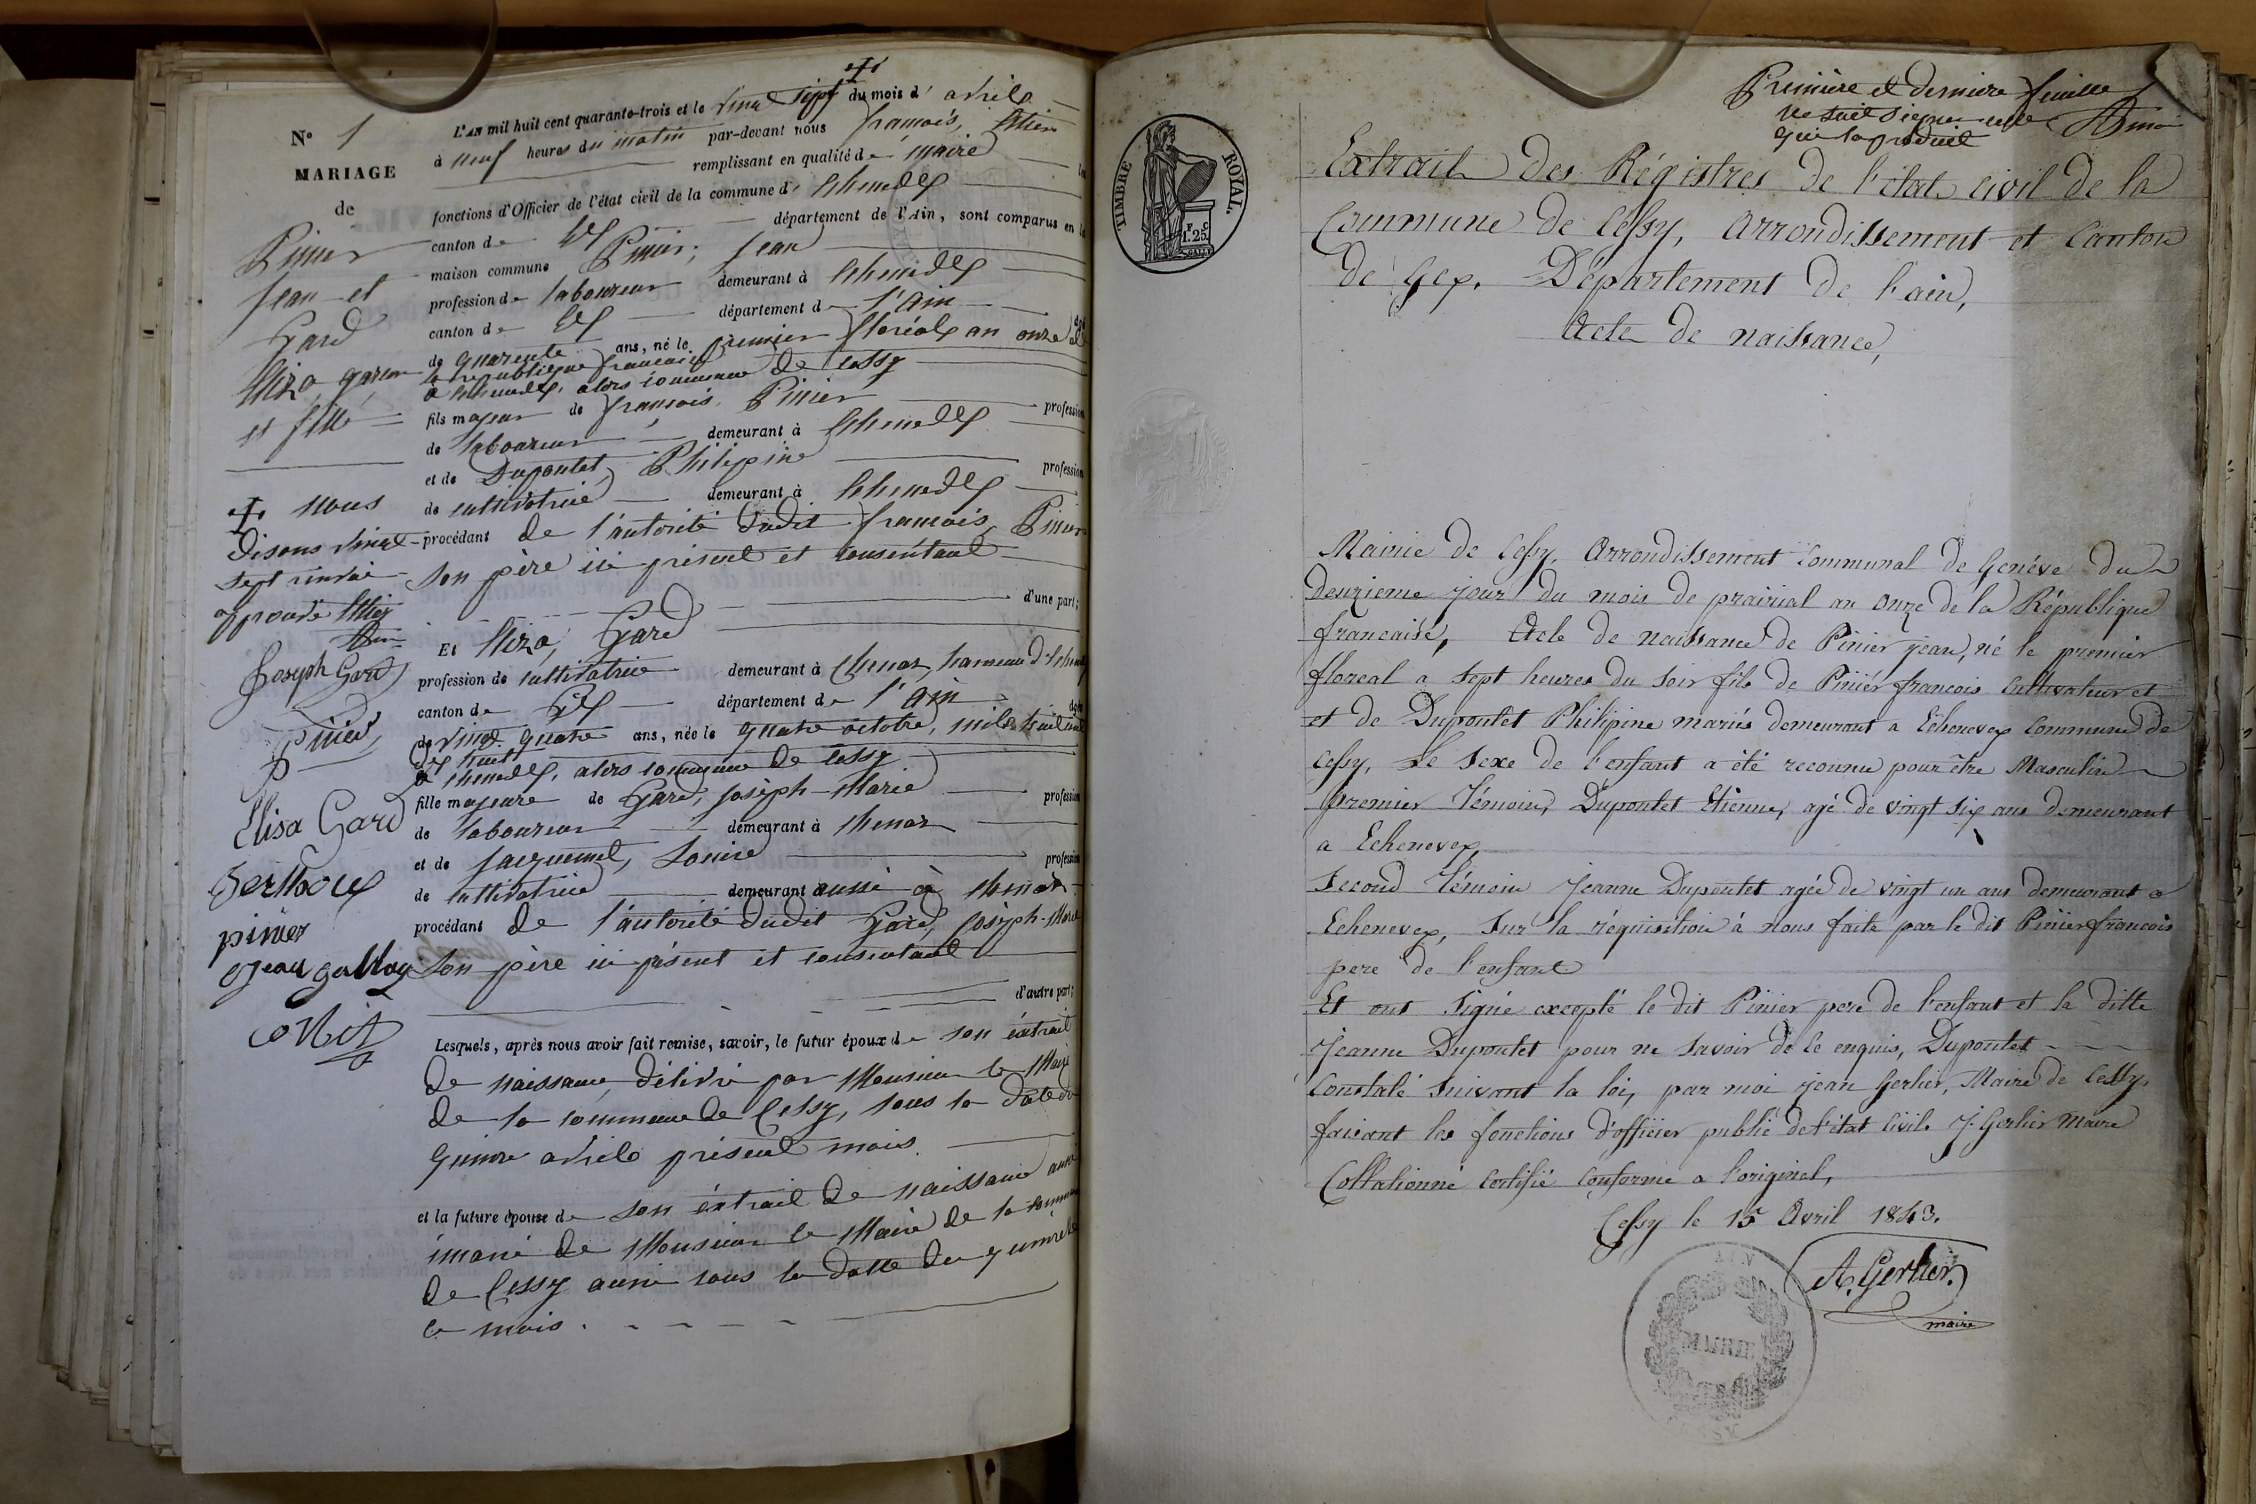 N° 1
MARIAGE
de
Pinier
Jean et
Gard
Eliza, garçon
et fille
Nous
Disons vingt
sept renvoi
approuvé
Joseph Gard
Pinier
Elisa Gard
Berthoux
pinier
Jean gallay
L'AN mil huit cent quarante-trois et le vingt sept du mois d' avril
à neuf heures du matin par-devant nous françois,
remplissant en qualité de maire les
fonctions d'Officier de l'état civil de la commune d' Echenevex
canton de Gex département de l'Ain, sont comparus en la
maison commune Pinier, Jean
profession de laboureur demeurant à Echenevex
canton de Gex département de l'Ain âgé
de quarante ans, né le premier floréal an onze de
la république française
à Echenevex, alors commune de Cessy
fils majeur de françois Pinier profession
de laboureur demeurant à Echenevex
et de Dupontet, Philipine profession
de cultivatrice demeurant à Echenevex
procédant de l'autorité dudit françois Pinier
son père ici présent et consentant
d'une part;
Et Eliza, Gard
profession de cultivatrice demeurant à Chenaz, hameau d'Echenevex
canton de Gex département de l'Ain âgée
de vingt quatre ans, née le quatre octobre, mil huit cent
dix huit
à Echenevex, alors commune de Cessy
fille majeure de Gard, Joseph-Marie profession
de laboureur demeurant à Chenaz
et de Jacquemet, Louise profession
de cultivatrice demeurant aussi à Chenaz
procédant de l'autorité dudit Gard, Joseph-Marie
son père ici présent et consentant
d'autre part;
Lesquels, après nous avoir fait remise, savoir, le futur époux de son extrait
de naissance, délivré par Monsieur le Maire
de la commune de Cessy, sous la date du
quinze avril présent mois.
et la future épouse de son extrait de naissance aussi
émané de Monsieur le Maire de la commune
de Cessy aussi sous la datte du quinze de
ce mois.
Première et dernière feuille
ne sait signer celle
qui la produit
TIMBRE ROYAL.
1.25
Extrait des Régistres de l'état civil de la
Commune de Cessy, arrondissement et Canton
de Gex. Département de l'ain,
Acte de naissance,
Mairie de Cessy, Arrondissement Communal de Genéve du
deuxieme jour du mois de prairial an onze de la République
francaise, Acte de naissance de Pinier jean, né le premier
floreal a sept heures du soir fils de Pinier francois Cultivateur et
et de Dupontet Philipine mariés demeurant a Echenevex Commune de
Cessy, Le sexe de l'enfant a été reconnu pour être Masculin
premier Témoin, Dupontet Etienne, agé de vingt six ans demeurant
a Echenevex
Second Témoin Jeanne Dupontet agée de vingt un ans demeurant a
Echenevex, sur la réquisition à nous faite par le dit Pinier francois
pere de l'enfant
Et ont signé excepté le dit Pinier pere de l'enfant et la ditte
Jeanne Dupontet pour ne savoir de ce enquis, Dupontet
Constaté suivant la loi, par moi jean Gerlier, Maire de Cessy,
faisant les fonctions d'officier public de l'état Civil. J. Gerlier maire
Collationné Certifié Conforme a l'original,
Cessy le 15 Avril 1843.
A. Gerlier
maire
AIN
MAIRIE
CESSY